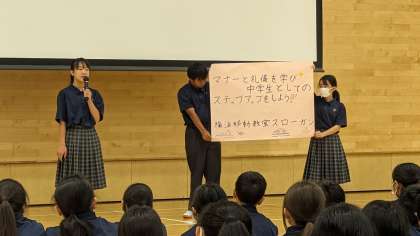 マナーと礼儀を学び
中学生としての
ステップアップをしよう!!
横浜移動教室スローガン